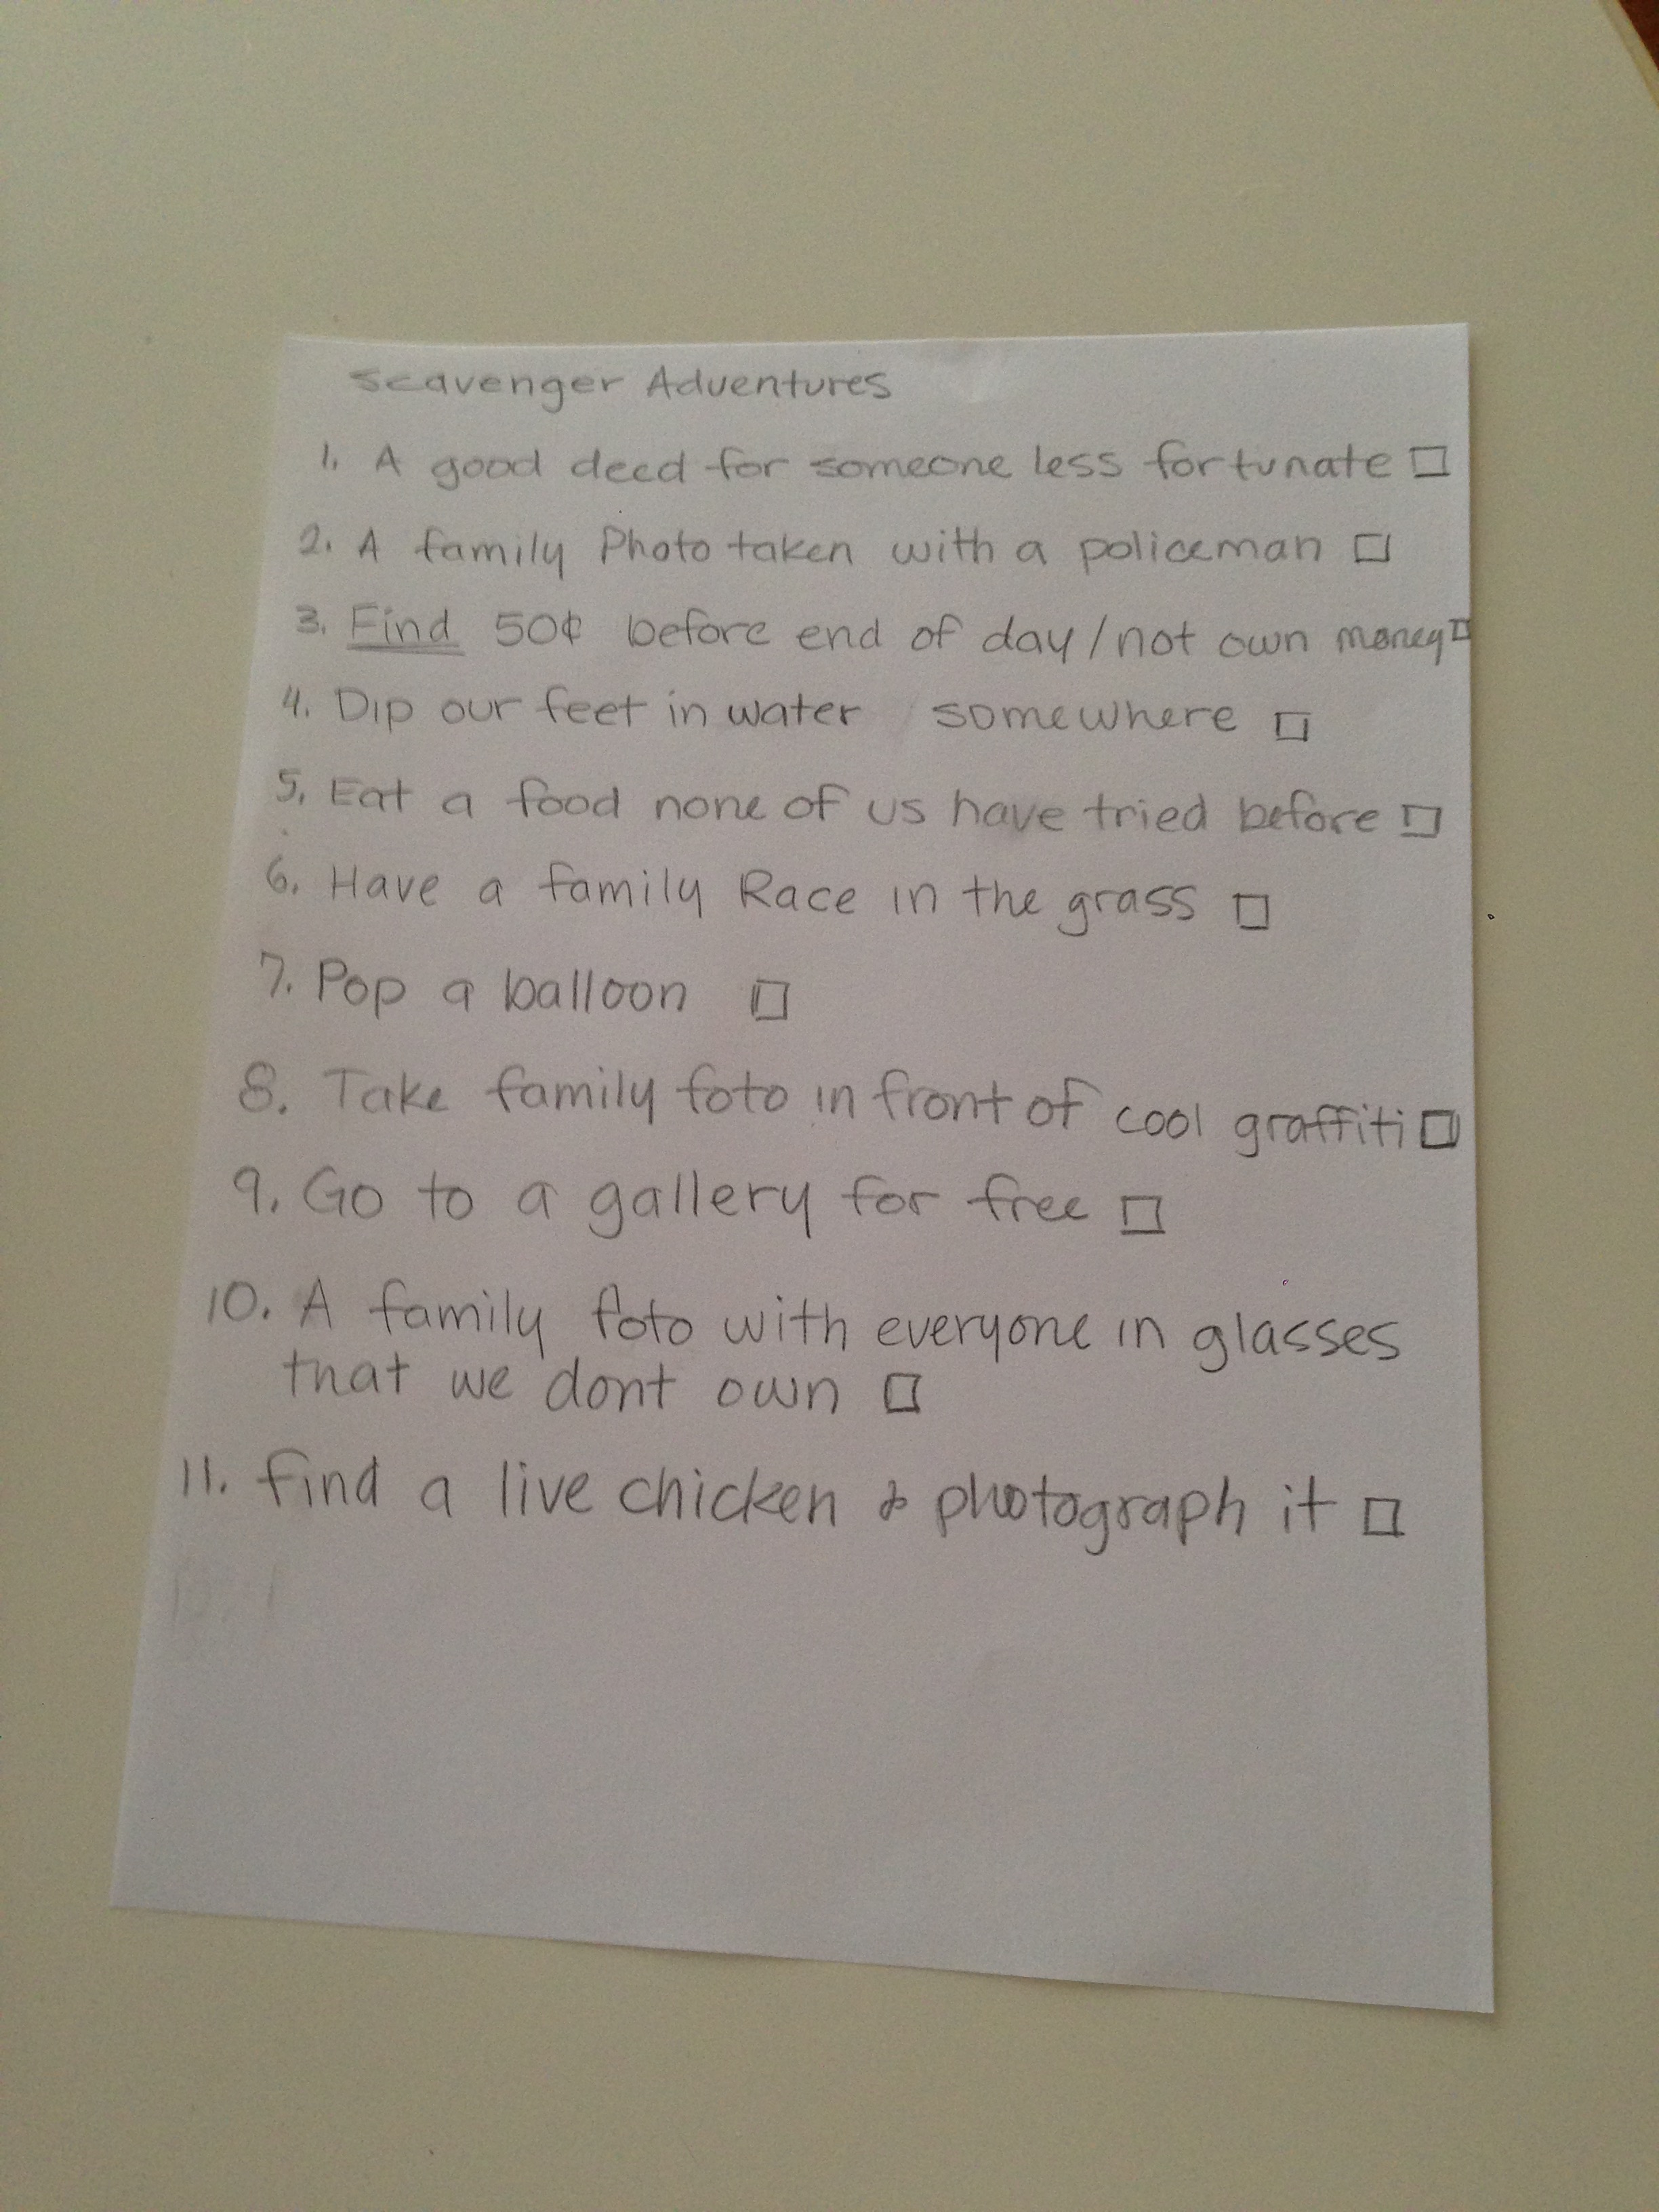 Scavenger Adventures
1. A good deed for someone less fortunate □
2. A family Photo taken with a policeman □
3. Find 50¢ before end of day/not own money □
4. Dip our feet in water somewhere □
5. Eat a food none of us have tried before □
6. Have a family Race in the grass □
7. Pop a balloon □
8. Take family foto in front of cool graffiti □
9. Go to a gallery for free □
10. A family foto with everyone in glasses
that we dont own □
11. find a live chicken & photograph it □